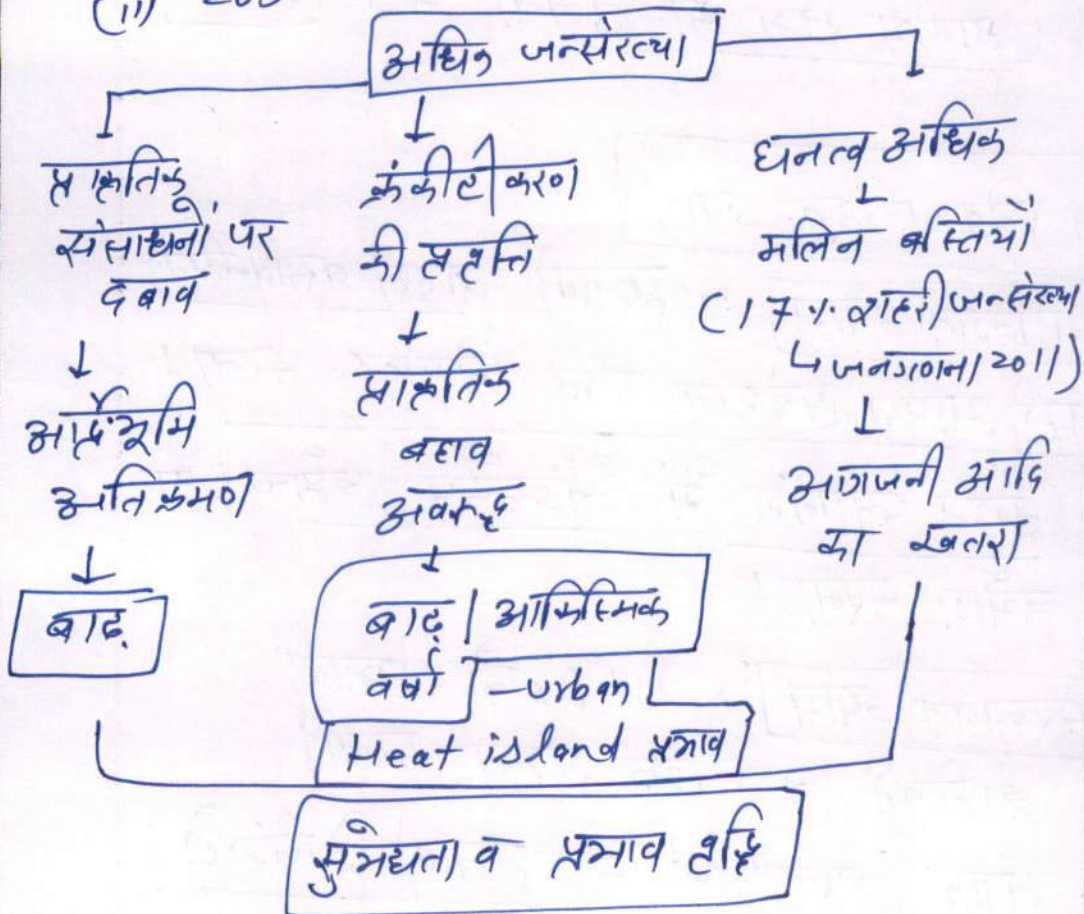 (ii)
अधिक जनसंख्या
प्राकृतिक
संसाधनों पर
दबाव
आर्द्रभूमि
अतिक्रमण
बाढ़
कंक्रीटीकरण
की प्रवृत्ति
प्राकृतिक
बहाव
अवरूद्ध
बाढ़ / आकस्मिक
वर्षा - Urban
Heat island प्रभाव
घनत्व अधिक
मलिन बस्तियों
(17% शहरी जनसंख्या
↳ जनगणना 2011)
आगजनी आदि
का खतरा
सुभेद्यता व प्रभाव वृद्धि